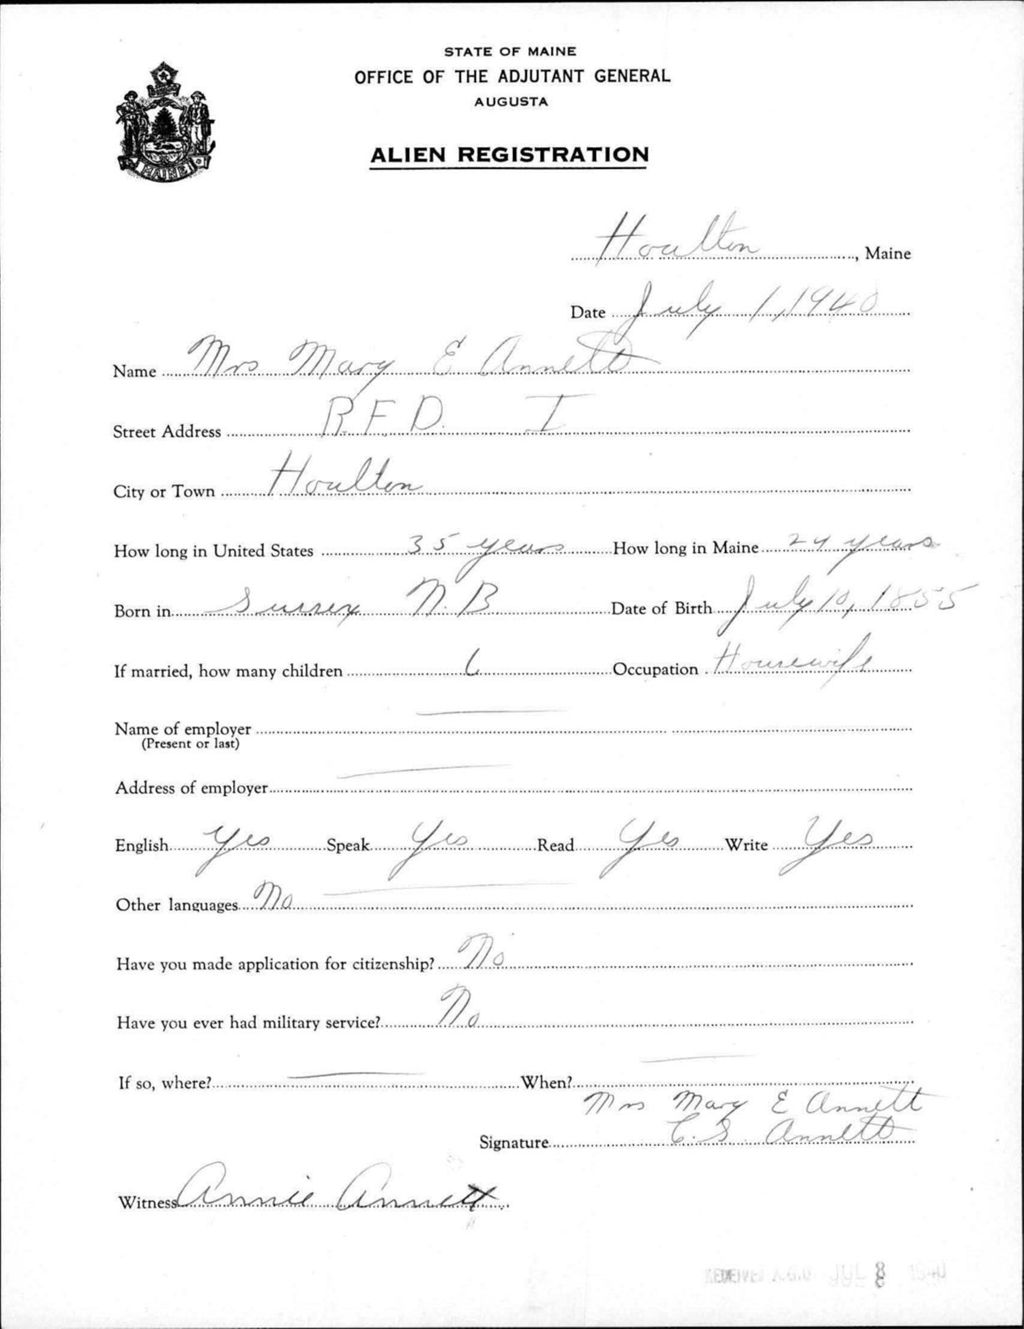 STATE OF MAINE
OFFICE OF THE ADJUTANT GENERAL
AUGUSTA
ALIEN REGISTRATION
MAINE
Houlton, Maine
Date July 1, 1940
Name Mrs Mary E Annett
Street Address R.F.D. I
City or Town Houlton
How long in United States 35 years How long in Maine 24 years
Born in Sussex N.B Date of Birth July 10, 1855
If married, how many children 6 Occupation Housewife
Name of employer
(Present or last)
Address of employer
English Yes Speak Yes Read Yes Write Yes
Other languages No
Have you made application for citizenship? No
Have you ever had military service? No
If so, where? When?
Mrs Mary E Annett
Signature C. S Annett
Witness Annie Annett
RECEIVED A.G.O. JUL 8 1940